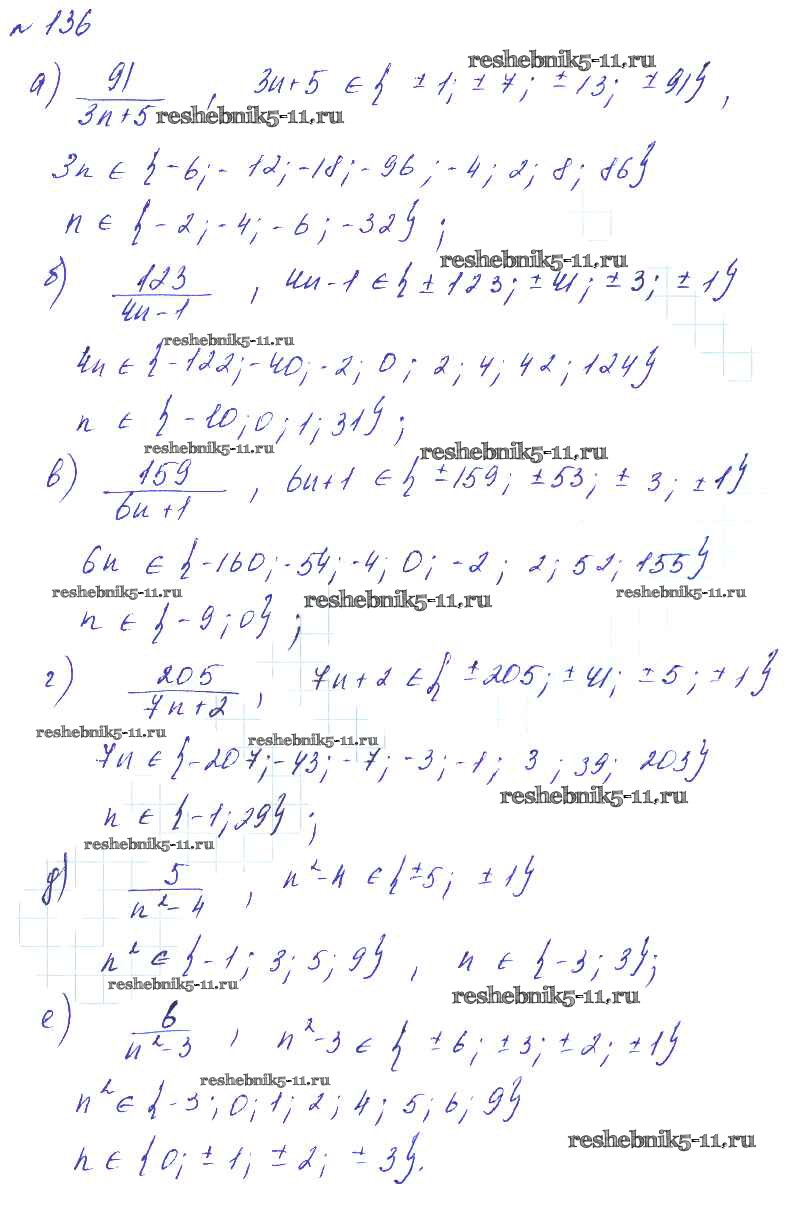 № 136
reshebnik5-11.ru
а) 91/(3n+5), 3n+5 ∈ { ±1; ±7; ±13; ±91},
reshebnik5-11.ru
3n ∈ {-6; -12; -18; -96; -4; 2; 8; 86}
n ∈ {-2; -4; -6; -32};
reshebnik5-11.ru
б) 123/(4n-1), 4n-1 ∈ {±123; ±41; ±3; ±1}
reshebnik5-11.ru
4n ∈ {-122; -40; -2; 0; 2; 4; 42; 124}
n ∈ {-10; 0; 1; 31};
reshebnik5-11.ru reshebnik5-11.ru
в) 159/(6n+1), 6n+1 ∈ {±159; ±53; ±3; ±1}
6n ∈ {-160; -54; -4; 0; -2; 2; 52; 155}
reshebnik5-11.ru reshebnik5-11.ru reshebnik5-11.ru
n ∈ {-9; 0};
г) 205/(7n+2), 7n+2 ∈ {±205; ±41; ±5; ±1}
reshebnik5-11.ru reshebnik5-11.ru
7n ∈ {-207; -43; -7; -3; -1; 3; 39; 203}
reshebnik5-11.ru
n ∈ {-1; 29};
reshebnik5-11.ru
д) 5/(n²-4), n²-4 ∈ {±5; ±1}
n² ∈ {-1; 3; 5; 9}, n ∈ {-3; 3};
reshebnik5-11.ru reshebnik5-11.ru
е) 6/(n²-3), n²-3 ∈ { ±6; ±3; ±2; ±1}
reshebnik5-11.ru
n² ∈ {-3; 0; 1; 2; 4; 5; 6; 9}
reshebnik5-11.ru
n ∈ {0; ±1; ±2; ±3}.